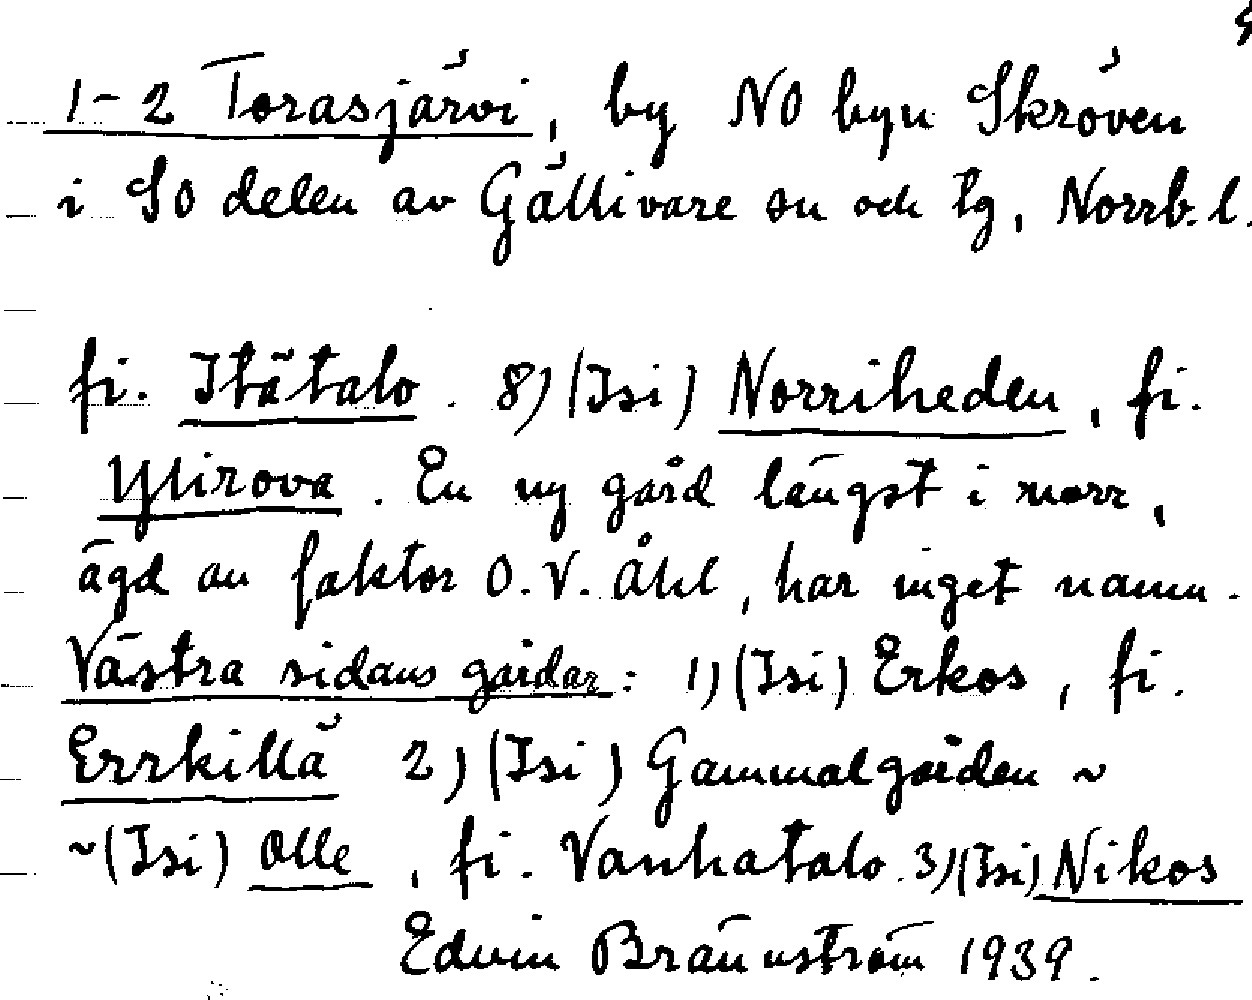 1-2 Torasjärvi, by NO byn Skröven
i SO delen av Gällivare sn och tg, Norrb. l.
fi. Itätalo. 8) (Isi) Norriheden, fi.
Ylirova. En ny gård längst i norr,
ägd av faktor O. V. Åhl, har inget namn.
Västra sidans gårdar: 1) (Isi) Erkos, fi.
Errkillä 2) (Isi) Gammalgården ~
~ (Isi) Olle, fi. Vanhatalo. 3) (Isi) Nikos
Edvin Brännström 1939.